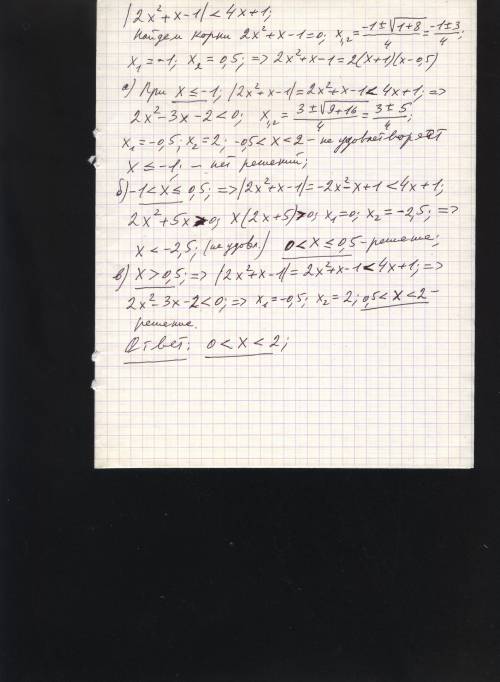 |2x²+x-1|<4x+1;
Найдем корни 2x²+x-1=0; x₁,₂=(-1±√(1+8))/4=(-1±3)/4;
x₁=-1; x₂=0,5; => 2x²+x-1=2(x+1)(x-0,5)
а) При x≤-1; |2x²+x-1|=2x²+x-1<4x+1; =>
2x²-3x-2<0; x₁,₂=(3±√(9+16))/4=(3±5)/4;
x₁=-0,5; x₂=2; -0,5<x<2 - не удовлетворяет
x≤-1; - нет решений;
б) -1<x≤0,5; => |2x²+x-1|=-2x²-x+1<4x+1;
2x²+5x>0; x(2x+5)>0; x₁=0; x₂=-2,5; =>
x<-2,5; (не удовл.) 0<x≤0,5 - решение;
в) x>0,5; => |2x²+x-1|=2x²+x-1<4x+1; =>
2x²-3x-2<0; => x₁=-0,5; x₂=2; 0,5<x<2 -
решение.
Ответ: 0<x<2;